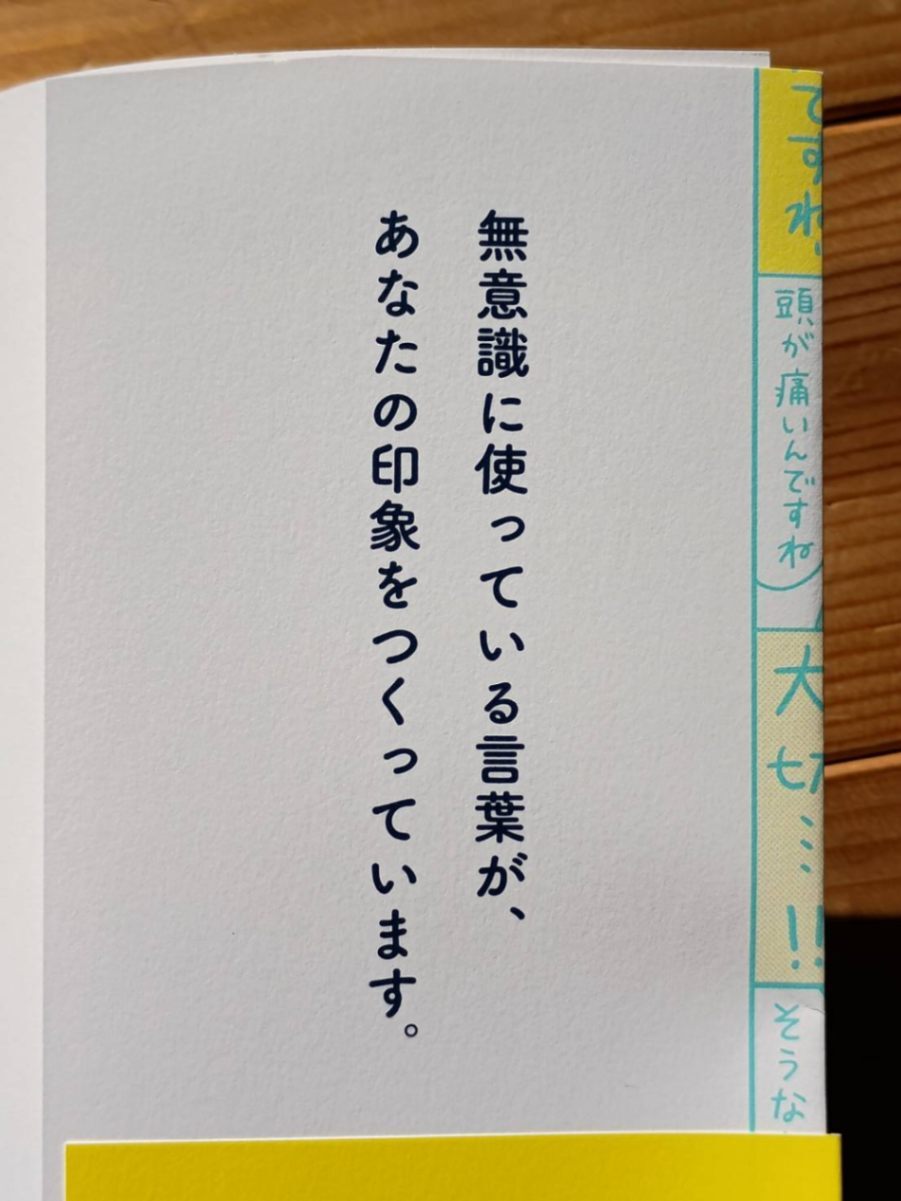 無意識に使っている言葉が、
あなたの印象をつくっています。
ですね
頭が痛いんですね
大切…!!
そうな